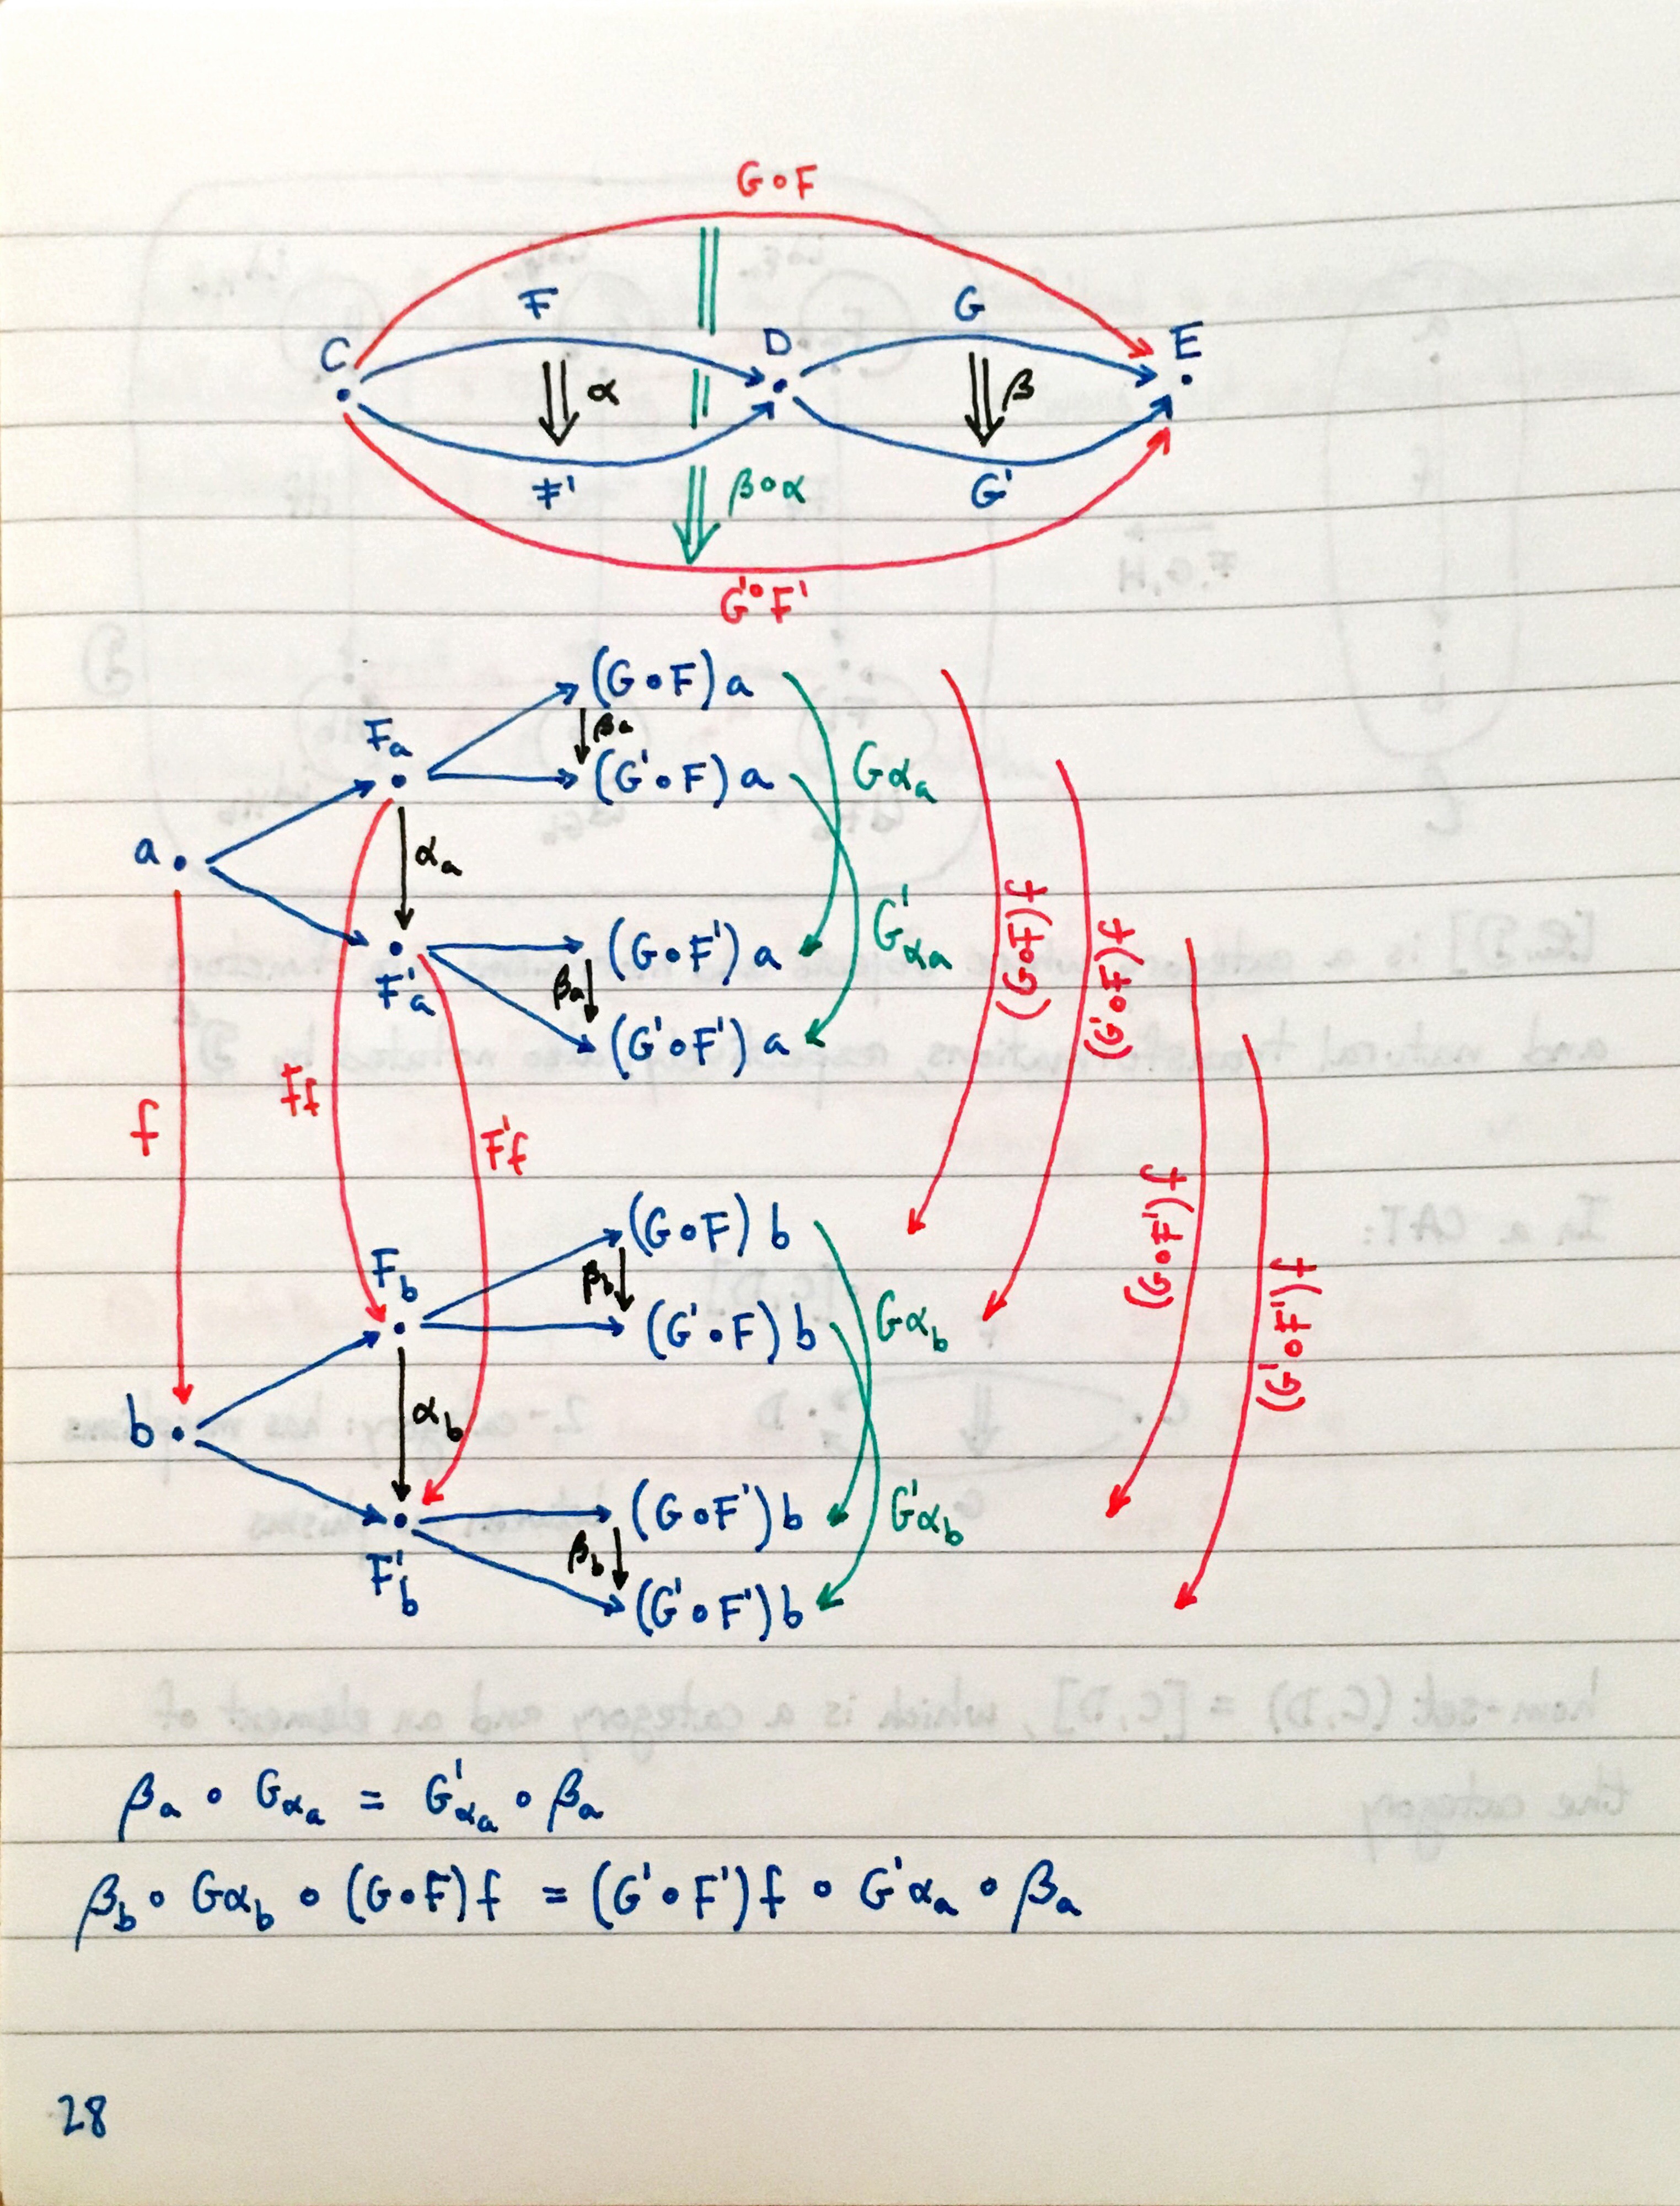 G∘F
F G
C D E
α β
F' β∘α G'
G'∘F'
(G∘F) a
Fa βa
(G'∘F) a Gαa
a αa
(G∘F)f
G'αa (G'∘F)f
(G∘F') a
F'a βa
(G'∘F') a
f Ff F'f
(G∘F')f
(G∘F) b
Fb βb
(G'∘F) b Gαb (G'∘F')f
b αb
(G∘F') b G'αb
F'b βb
(G'∘F') b
βa ∘ Gαa = G'αa ∘ βa
βb ∘ Gαb ∘ (G∘F)f = (G'∘F')f ∘ G'αa ∘ βa
28